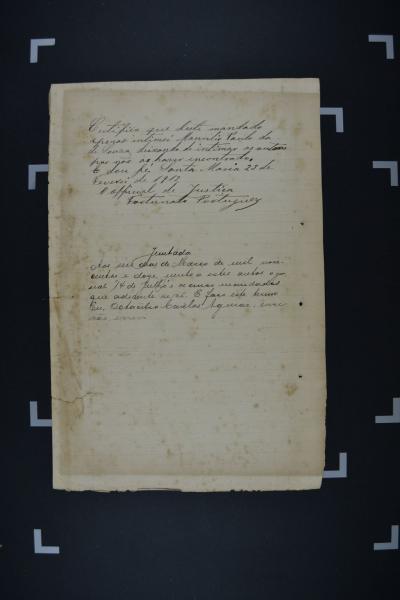 Certifico que deste mandado
apenas intimei Manoelio Paulo da
de Souza, deixando de intimar os outros
por não os haver encontrado.
E dou fé. Santa Maria 23 de
Fevereiro de 1912
O official de Justiça
Fortunato Portuguez
Juntada
Aos seis dias de Março de mil nove-
centos e doze, junto a estes autos o jor-
nal 14 de Julho e os mandados
que adeante segue. E faço este termo
Eu, Octacilio Carlos Aguiar, escri-
vão, escrevi